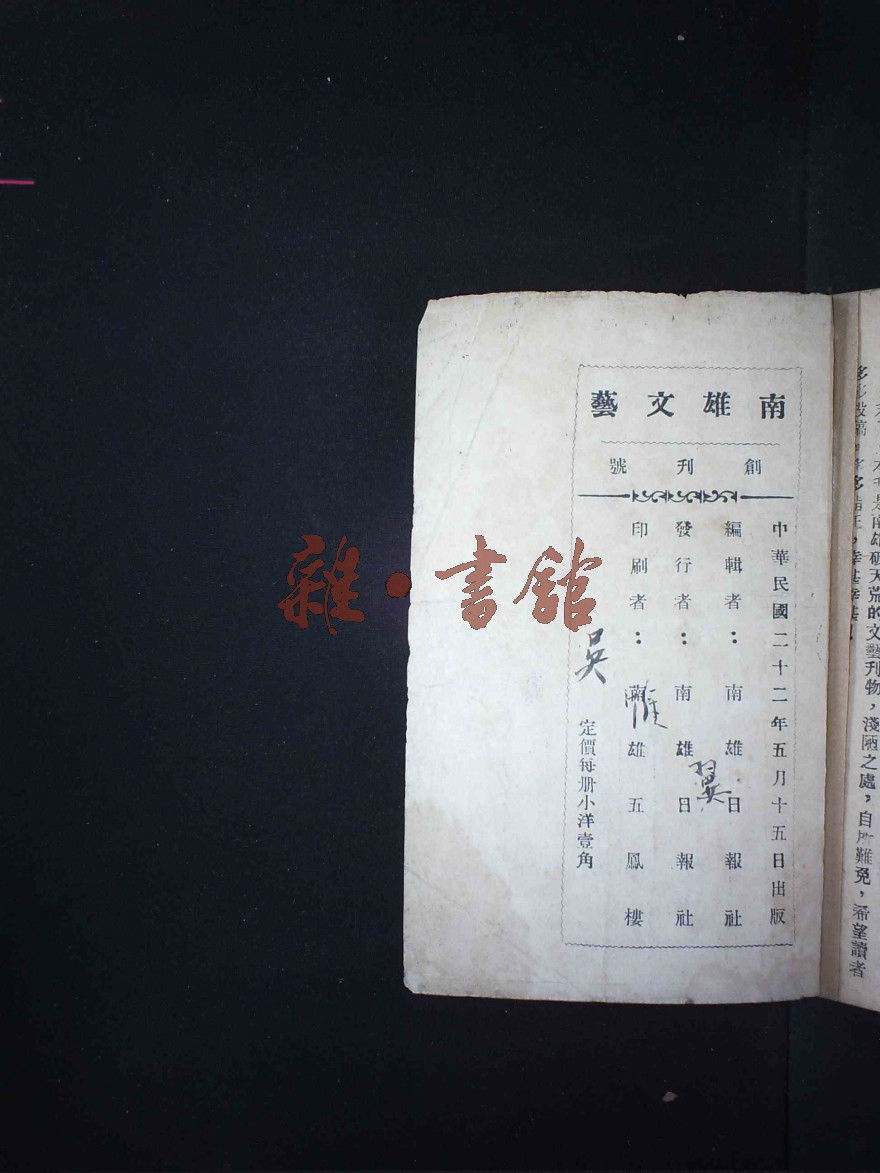 南雄文藝
創刊號
中華民國二十二年五月十五日出版
編輯者：南雄日報社
發行者：南雄日報社
印刷者：南雄五鳳樓
定價每册小洋壹角
吳
翼
雜·書館
本刊是南雄破天荒的文藝刊物，淺陋之處，自所難免，希望讀者